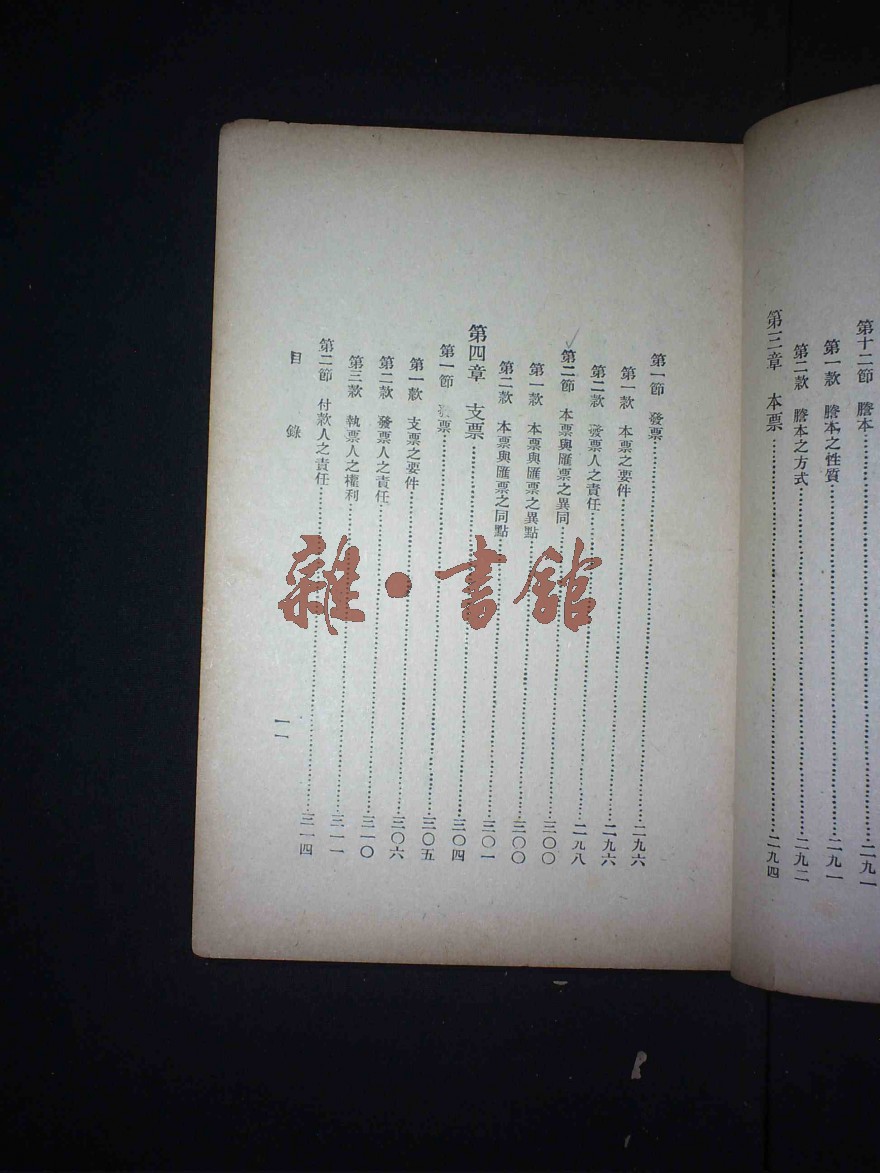 第十二節 謄本……二九一
第一款 謄本之性質……二九一
第二款 謄本之方式……二九二
第三章 本票……二九四
第一節 發票……二九六
第一款 本票之要件……二九六
第二款 發票人之責任……二九八
第二節 本票與匯票之異同……三〇〇
第一款 本票與匯票之異點……三〇〇
第二款 本票與匯票之同點……三〇一
第四章 支票……三〇四
第一節 發票……三〇五
第一款 支票之要件……三〇六
第二款 發票人之責任……三一〇
第三款 執票人之權利……三一一
第二節 付款人之責任……三一四
目錄
一一
雜·書館